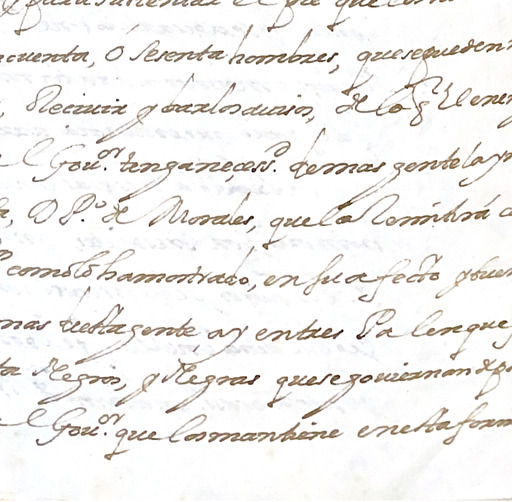 para sustentar el pie que
cuenta, O sesenta hombres, que se pueden
Recivir y dar los avisos, de lo q̃ El ene
el Gouor. tenga necessd. demas gente la
O Po. de Morales, que la Rembirá
como lo ha mostrado, en su afecto y buen
mas desta gente ay entres Palenques
ta Negros, y Negras que se goviernan xp
el Gouor. que los mantiene en esta form